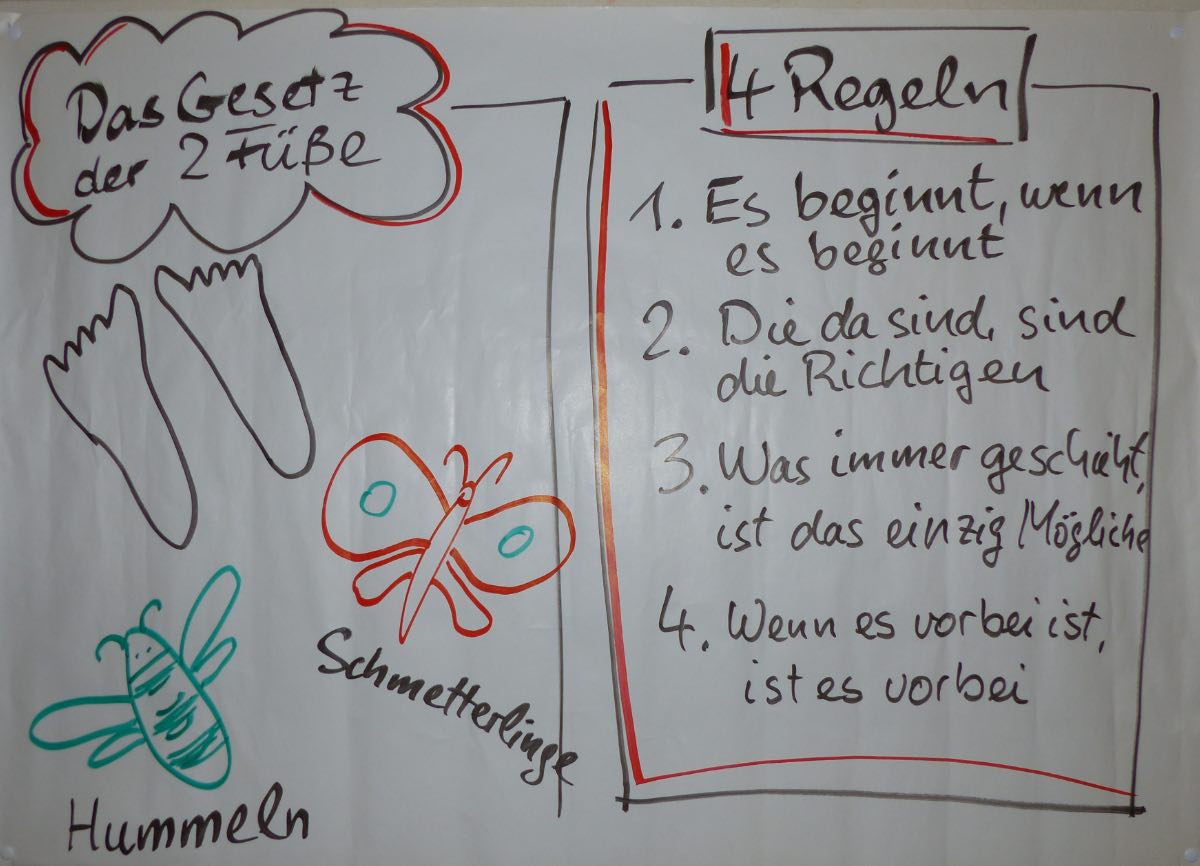 Das Gesetz
der 2 Füße
Schmetterlinge
Hummeln
4 Regeln
1. Es beginnt, wenn
es beginnt
2. Die da sind, sind
die Richtigen
3. Was immer geschieht,
ist das einzig Mögliche
4. Wenn es vorbei ist,
ist es vorbei